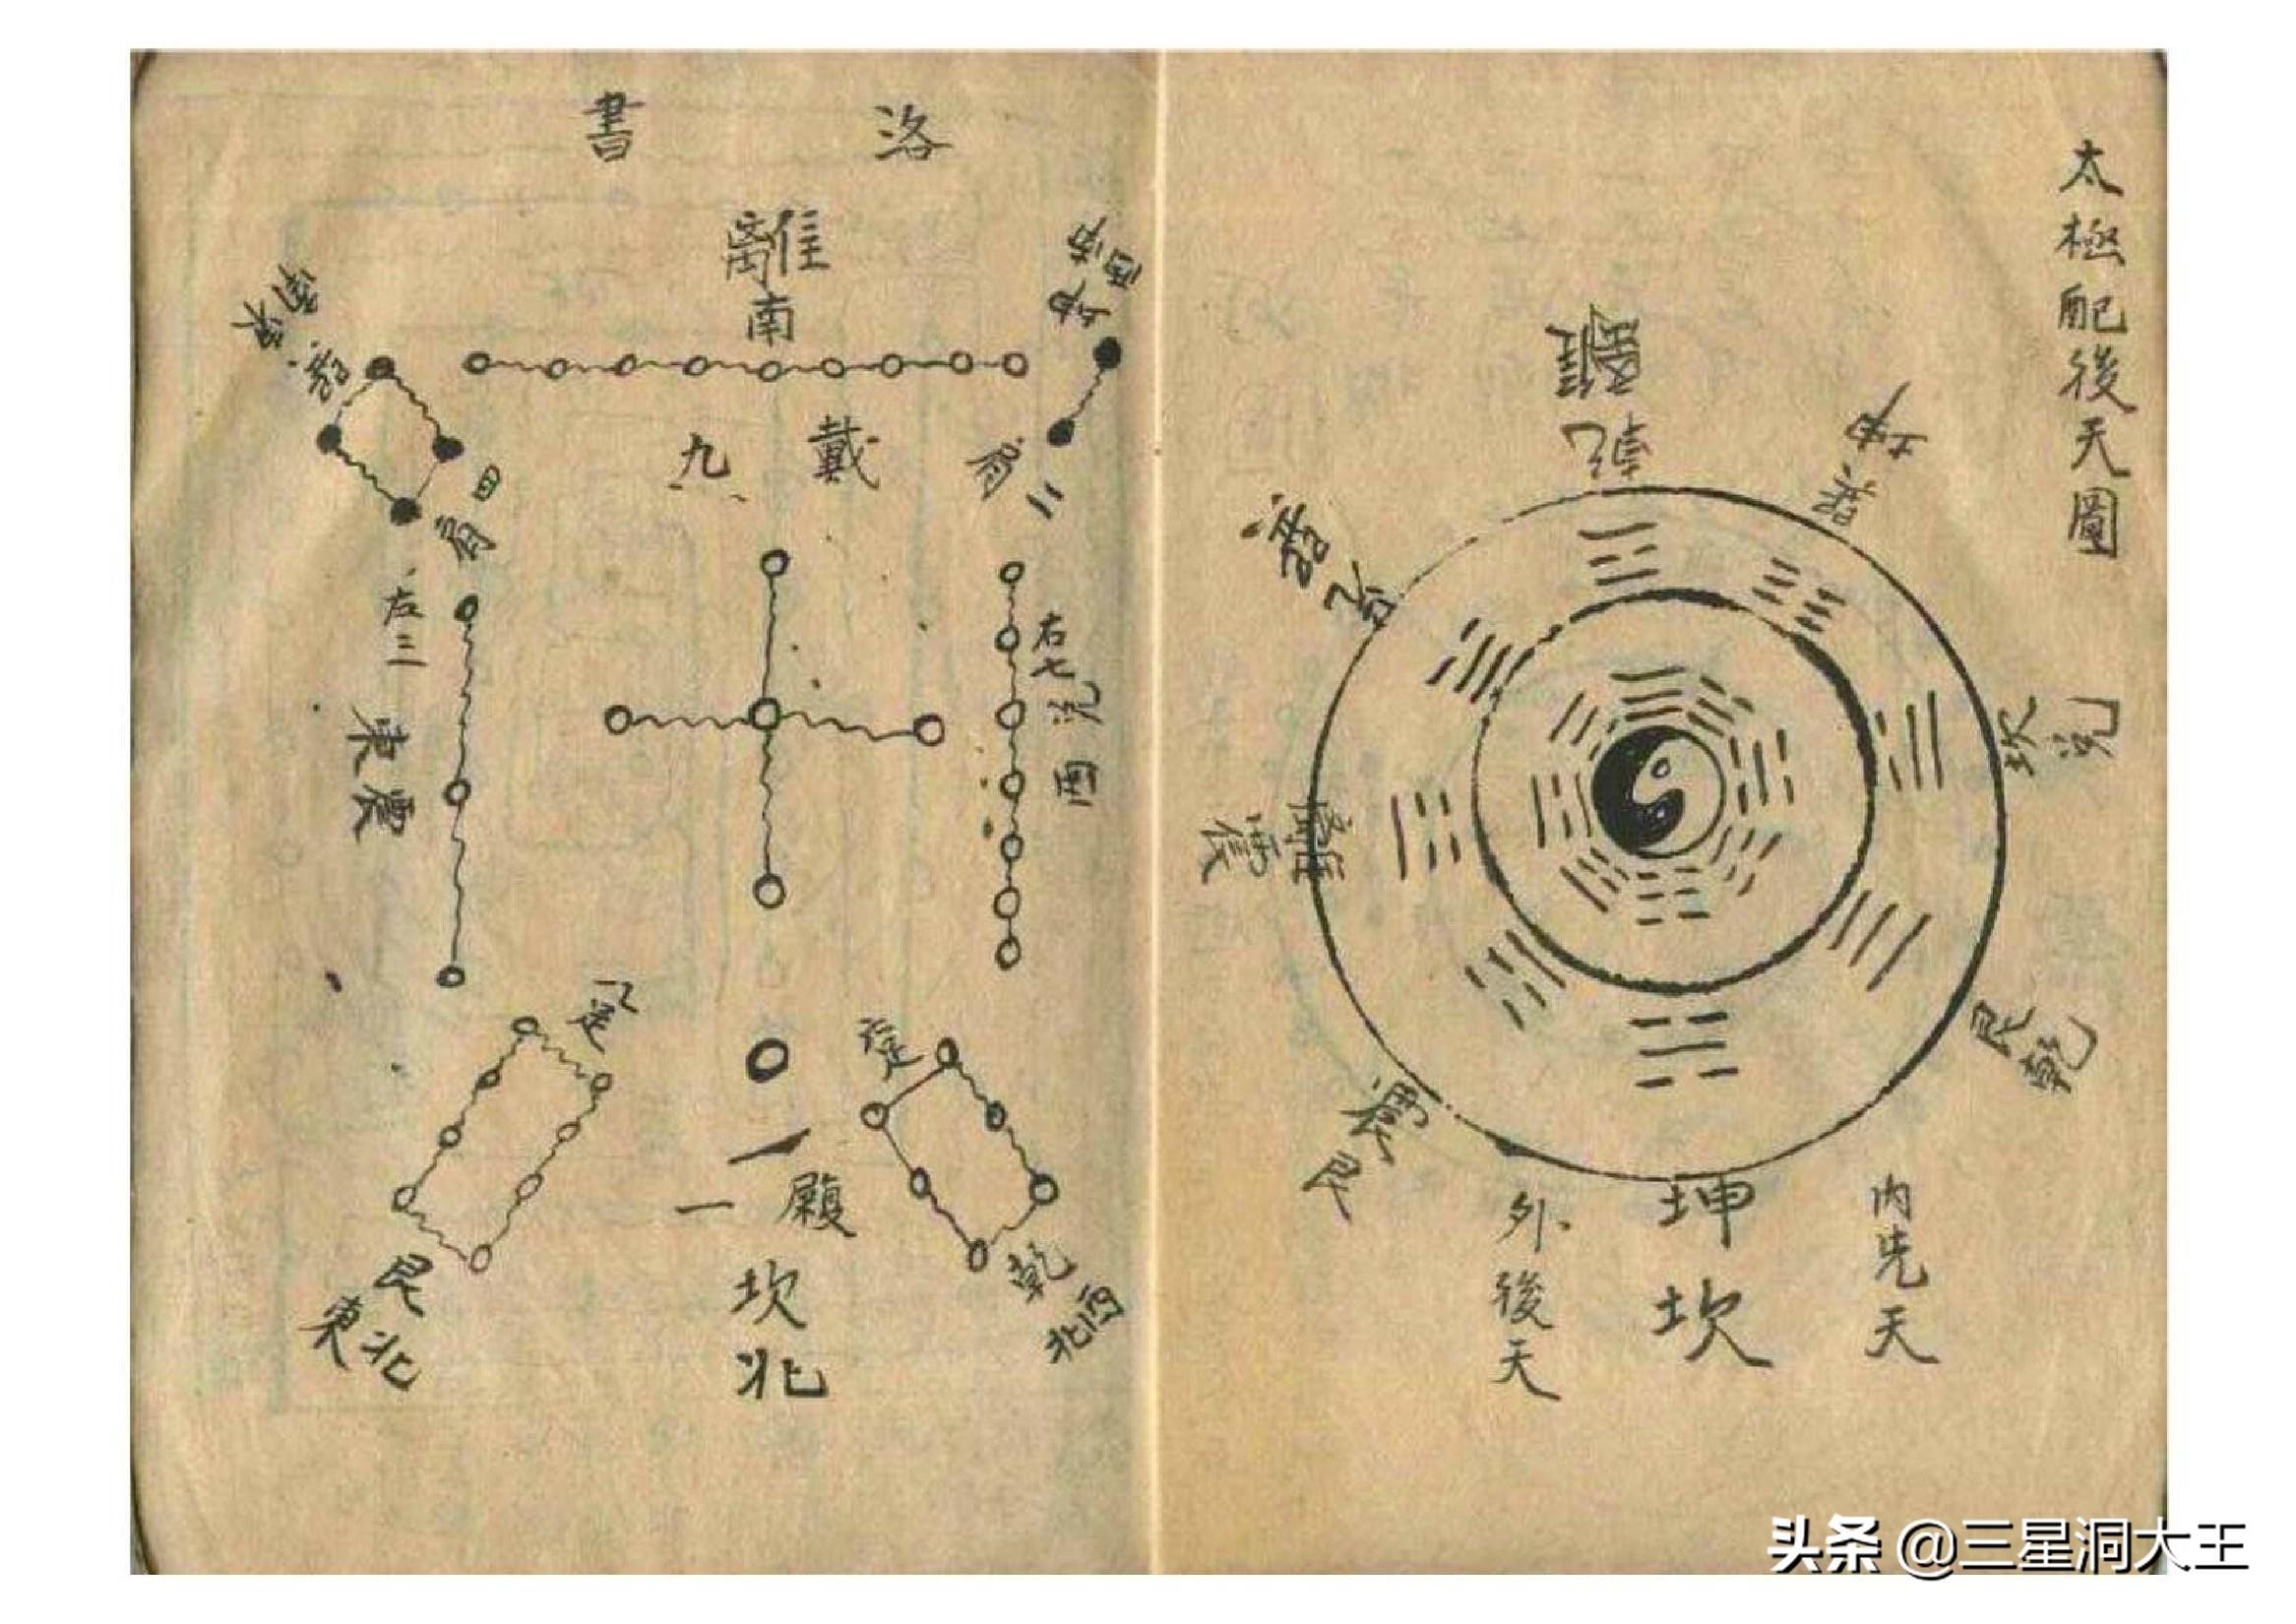 太極配後天圖
離
乾
坤
兌
坎
乾
艮
內先天
坤
坎
外後天
震
艮
離
震
洛書
離
南
戴九
二
四
右七
兌西
左三
震東
足
足
一
履一
坎
北
乾
西北
艮
東北
头条 @三星洞大王